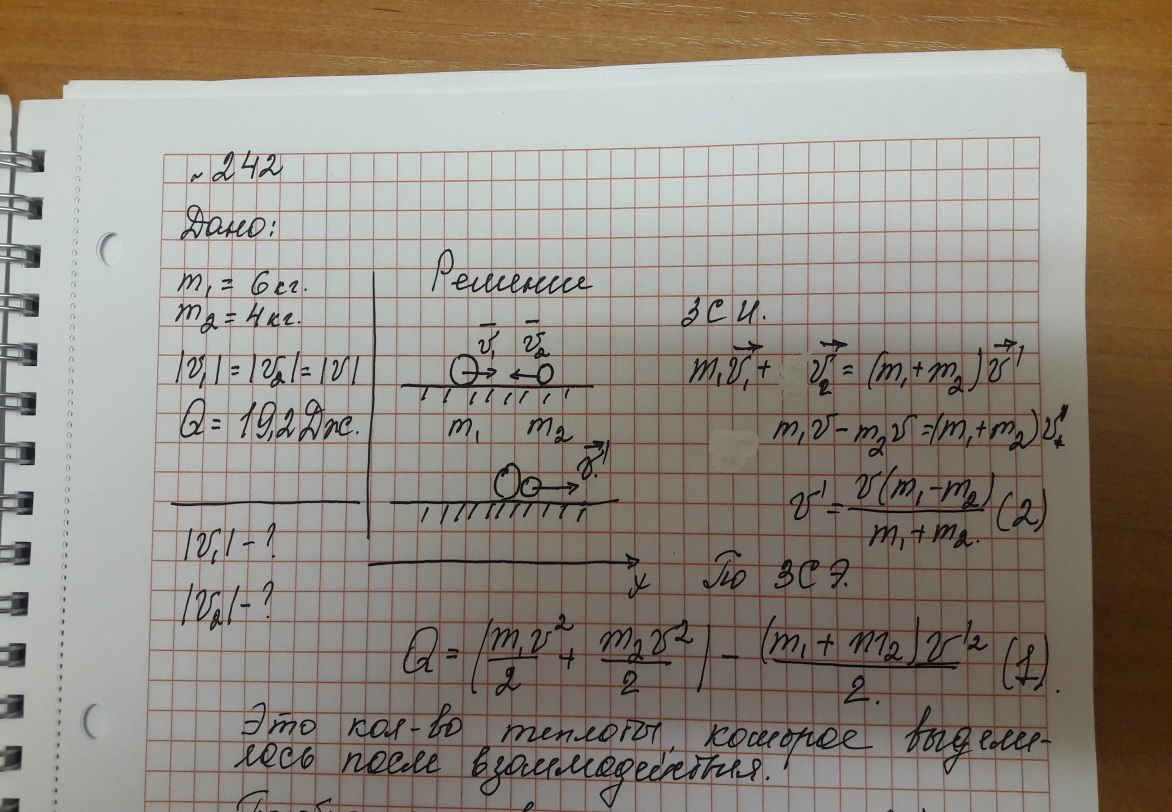 ~ 242
Дано:
m₁ = 6 кг.
m₂ = 4 кг.
|v₁| = |v₂| = |v|
Q = 19,2 Дж.
|v₁| - ?
|v₂| - ?
Решение
v̄₁ v̄₂
m₁ m₂
v⃗'
x
ЗСИ.
m₁v⃗₁ + v⃗₂ = (m₁ + m₂) v⃗'
m₁v - m₂v = (m₁ + m₂) v'ₓ
v' = v(m₁ - m₂) / m₁ + m₂. (2)
По ЗСЭ.
Q = (m₁v²/2 + m₂v²/2) - (m₁ + m₂)v'²/2. (1).
Это кол-во теплоты, которое выдели-
лось после взаимодействия.